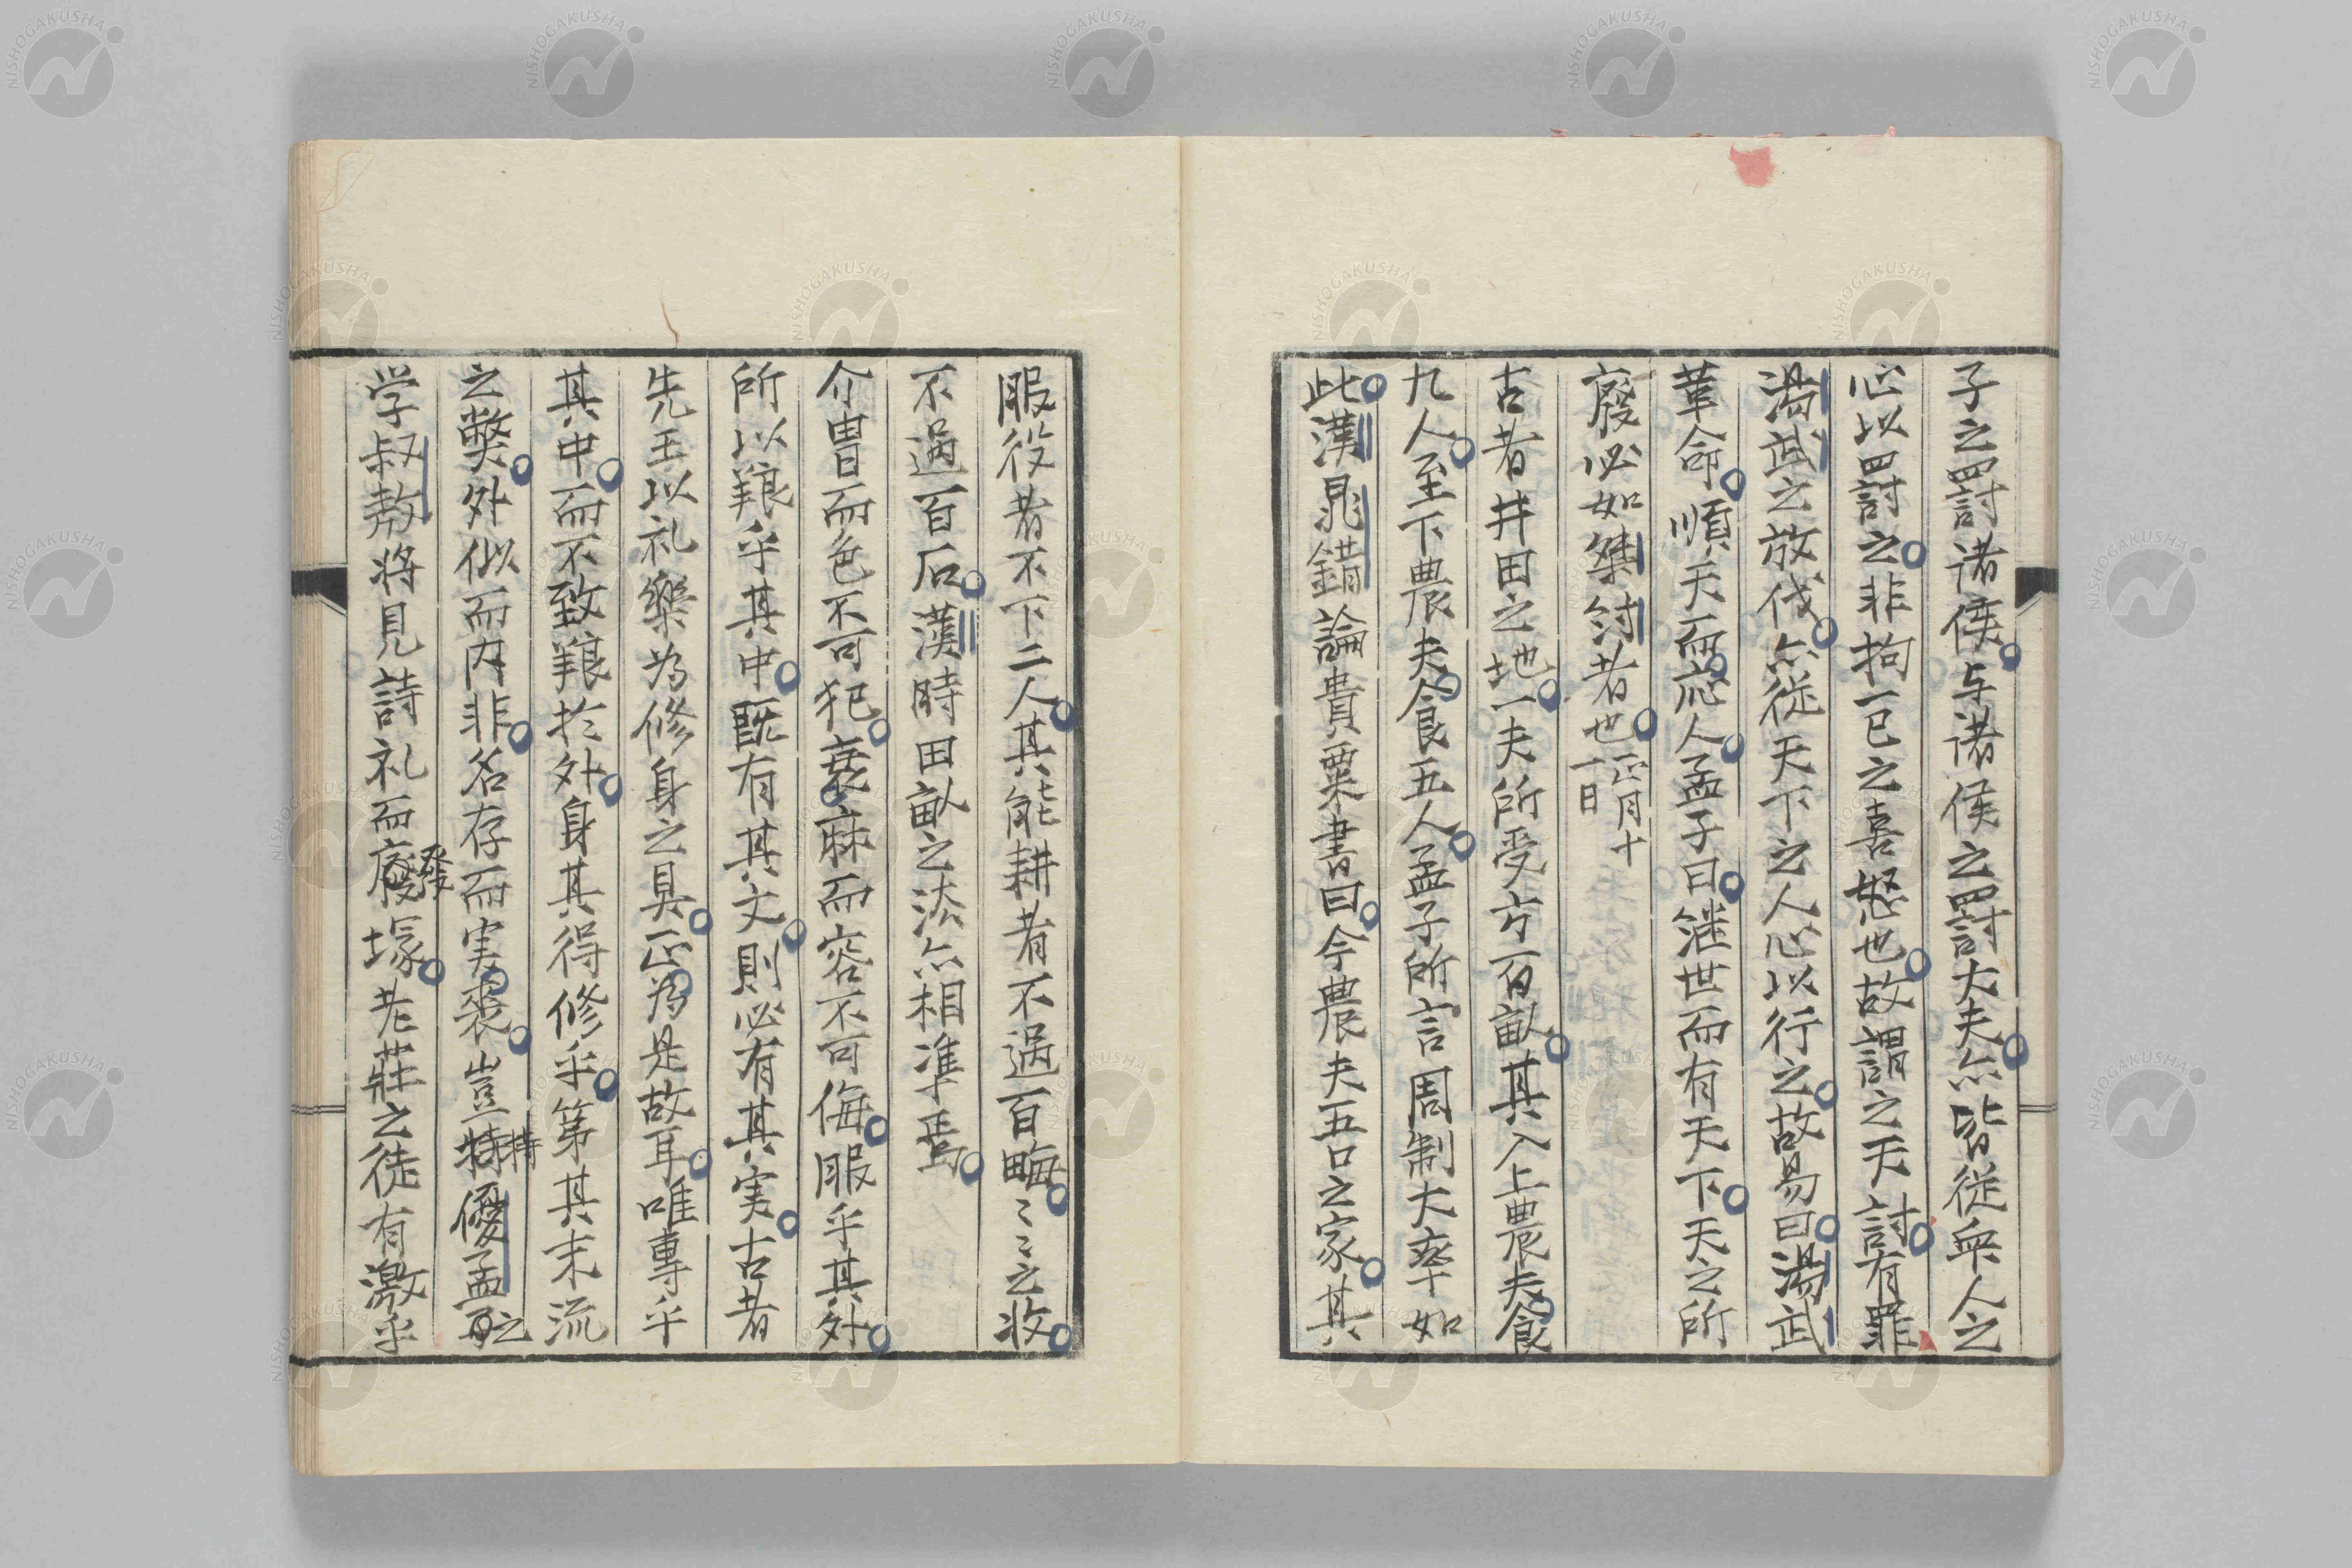 子之罸諸侯与諸侯之罸大夫亦皆従衆人之
心以罸之非拘一已之喜怒也故謂之天討有罪
湯武之放伐亦従天下之人心以行之故易曰湯武
革命順天而応人孟子曰継世而有天下天之所
廢必如桀紂者也正月十
一日
古者井田之地一夫所受方百畝其入上農夫食
九人至下農夫食五人孟子所言周制大率如
此漢晁錯論貴粟書曰今農夫五口之家其
服役者不下二人其能耕者不過百畮〻〻之收
不過百石漢時田畝之法亦相準焉
介冑而色不可犯衰麻而容不可侮服乎其外
所以艱乎其中既有其文則必有其実古者
先王以礼樂為修身之具正為是故耳唯專乎
其中而不致艱於外身其得修乎第其末流
之弊外似而内非名存而実喪豈特優孟之
学叔敖將見詩礼而發塚老莊之徒有激乎